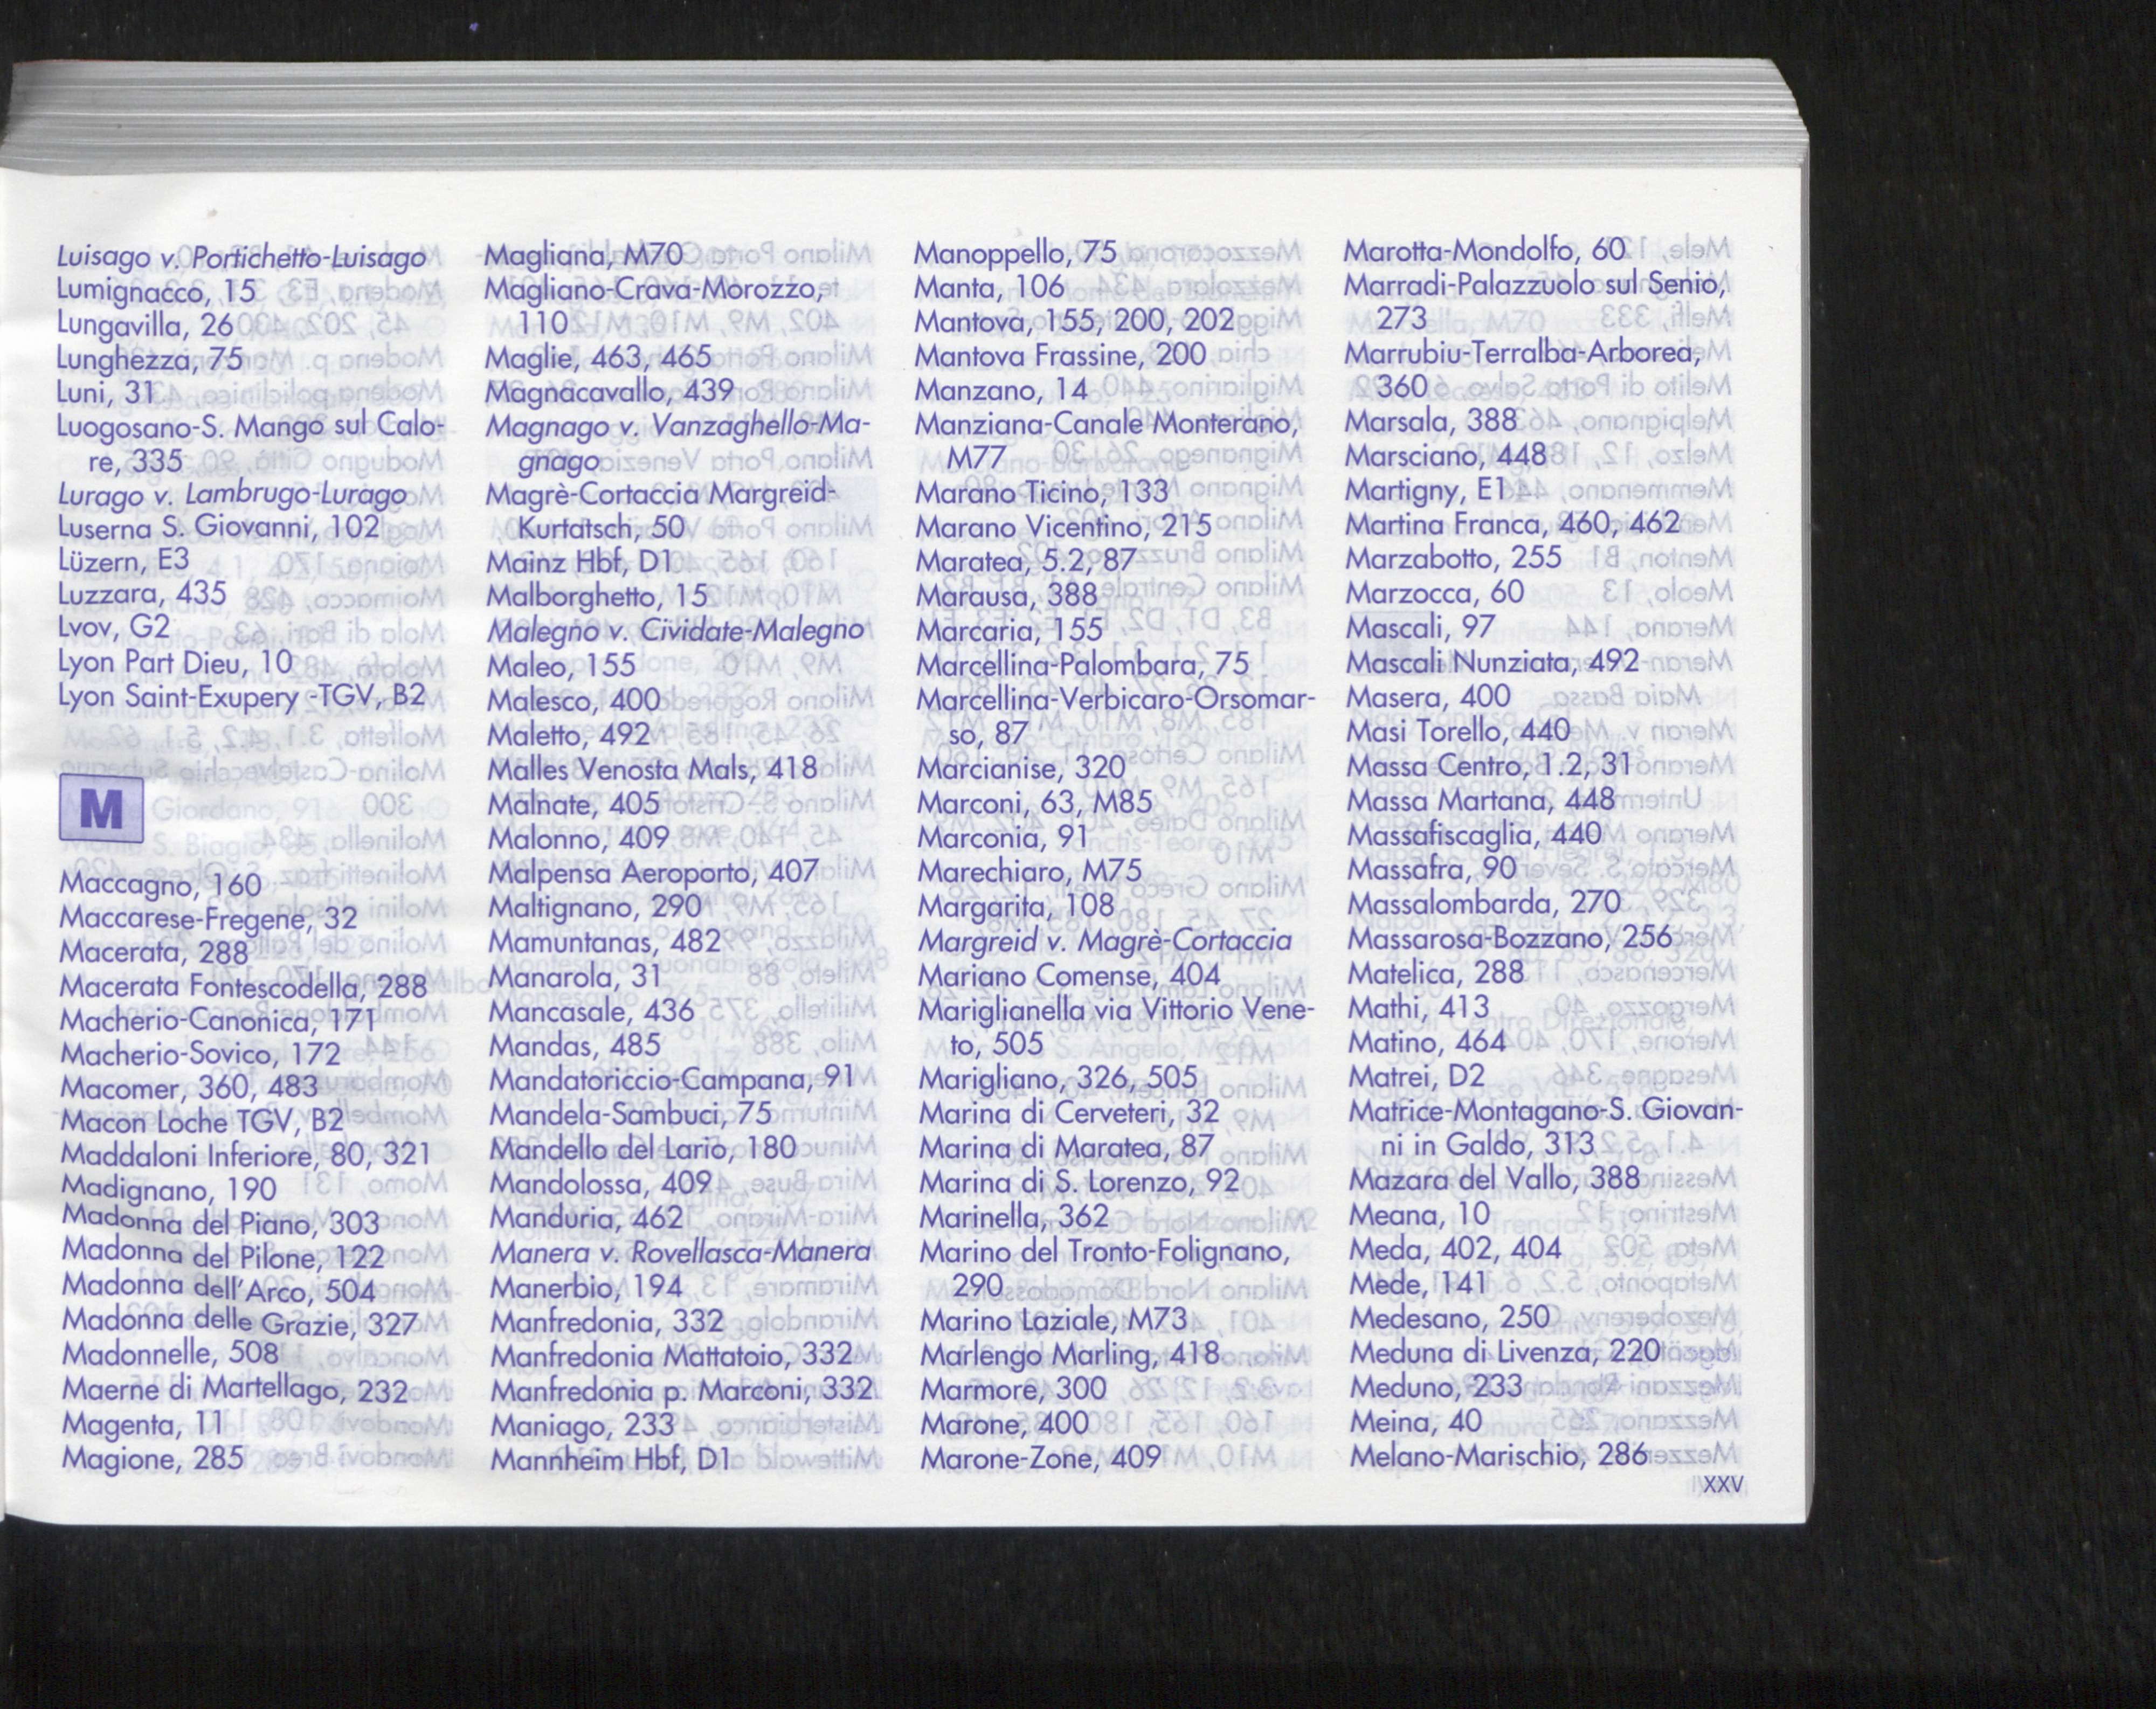 Luisago v. Portichetto-Luisago
Lumignacco, 15
Lungavilla, 26
Lunghezza, 75
Luni, 31
Luogosano-S. Mango sul Calo-
re, 335
Lurago v. Lambrugo-Lurago
Luserna S. Giovanni, 102
Lüzern, E3
Luzzara, 435
Lvov, G2
Lyon Part Dieu, 10
Lyon Saint-Exupery -TGV, B2
M
Maccagno, 160
Maccarese-Fregene, 32
Macerata, 288
Macerata Fontescodella, 288
Macherio-Canonica, 171
Macherio-Sovico, 172
Macomer, 360, 483
Macon Loche TGV, B2
Maddaloni Inferiore, 80, 321
Madignano, 190
Madonna del Piano, 303
Madonna del Pilone, 122
Madonna dell'Arco, 504
Madonna delle Grazie, 327
Madonnelle, 508
Maerne di Martellago, 232
Magenta, 11
Magione, 285
Magliana, M70
Magliano-Crava-Morozzo,
110
Maglie, 463, 465
Magnacavallo, 439
Magnago v. Vanzaghello-Ma-
gnago
Magrè-Cortaccia Margreid-
Kurtatsch, 50
Mainz Hbf, D1
Malborghetto, 15
Malegno v. Cividate-Malegno
Maleo, 155
Malesco, 400
Maletto, 492
Malles Venosta Mals, 418
Malnate, 405
Malonno, 409
Malpensa Aeroporto, 407
Maltignano, 290
Mamuntanas, 482
Manarola, 31
Mancasale, 436
Mandas, 485
Mandatoriccio-Campana, 91
Mandela-Sambuci, 75
Mandello del Lario, 180
Mandolossa, 409
Manduria, 462
Manera v. Rovellasca-Manera
Manerbio, 194
Manfredonia, 332
Manfredonia Mattatoio, 332
Manfredonia p. Marconi, 332
Maniago, 233
Mannheim Hbf, D1
Manoppello, 75
Manta, 106
Mantova, 155, 200, 202
Mantova Frassine, 200
Manzano, 14
Manziana-Canale Monterano,
M77
Marano Ticino, 133
Marano Vicentino, 215
Maratea, 5.2, 87
Marausa, 388
Marcaria, 155
Marcellina-Palombara, 75
Marcellina-Verbicaro-Orsomar-
so, 87
Marcianise, 320
Marconi, 63, M85
Marconia, 91
Marechiaro, M75
Margarita, 108
Margreid v. Magrè-Cortaccia
Mariano Comense, 404
Mariglianella via Vittorio Vene-
to, 505
Marigliano, 326, 505
Marina di Cerveteri, 32
Marina di Maratea, 87
Marina di S. Lorenzo, 92
Marinella, 362
Marino del Tronto-Folignano,
290
Marino Laziale, M73
Marlengo Marling, 418
Marmore, 300
Marone, 400
Marone-Zone, 409
Marotta-Mondolfo, 60
Marradi-Palazzuolo sul Senio,
273
Marrubiu-Terralba-Arborea,
360
Marsala, 388
Marsciano, 448
Martigny, E1
Martina Franca, 460, 462
Marzabotto, 255
Marzocca, 60
Mascali, 97
Mascali Nunziata, 492
Masera, 400
Masi Torello, 440
Massa Centro, 1.2, 31
Massa Martana, 448
Massafiscaglia, 440
Massafra, 90
Massalombarda, 270
Massarosa-Bozzano, 256
Matelica, 288
Mathi, 413
Matino, 464
Matrei, D2
Matrice-Montagano-S. Giovan-
ni in Galdo, 313
Mazara del Vallo, 388
Meana, 10
Meda, 402, 404
Mede, 141
Medesano, 250
Meduna di Livenza, 220
Meduno, 233
Meina, 40
Melano-Marischio, 286
XXV